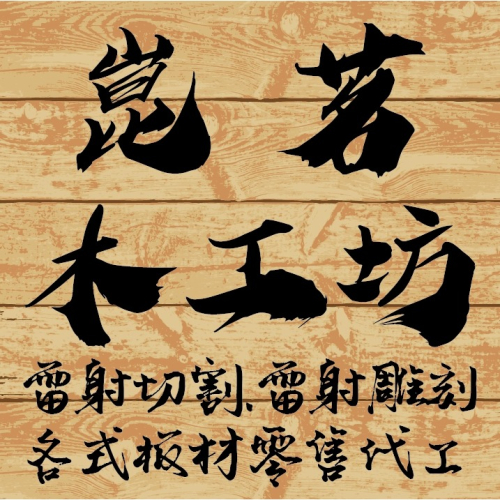 崑茗
木工坊
雷射切割、雷射雕刻
各式板材零售代工